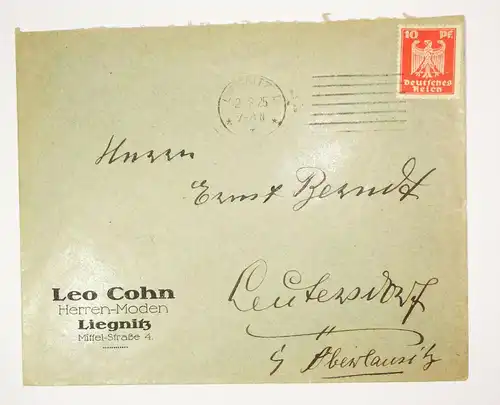 10 Pf.
Deutsches
Reich
Herrn
Ernst Berndt
Leutersdorf
Oberlausitz
Leo Cohn
Herren-Moden
Liegnitz
Mittel-Straße 4.